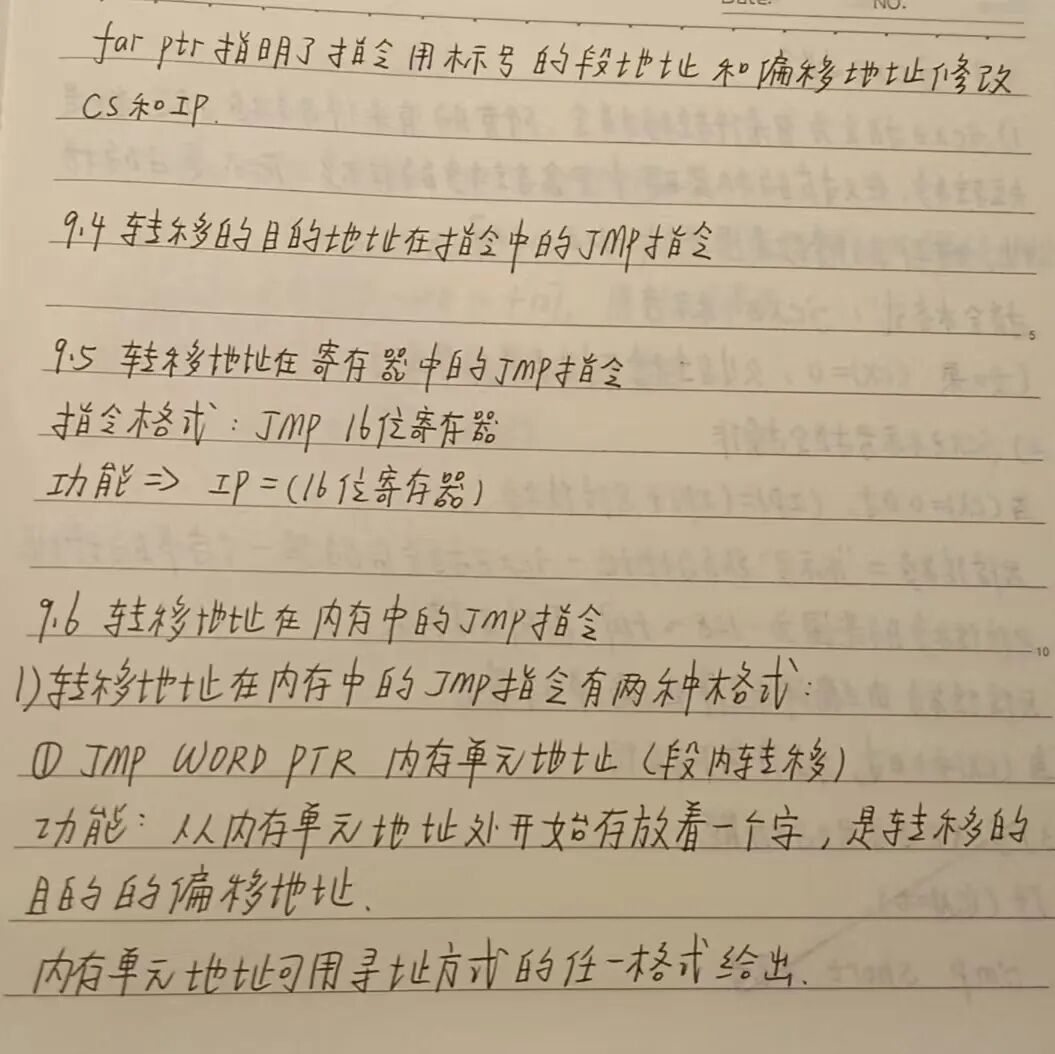 Date.
NO.
far ptr指明了指令用标号的段地址和偏移地址修改
CS和IP.
9.4 转移的目的地址在指令中的JMP指令
5
9.5 转移地址在寄存器中的JMP指令
指令格式:JMP 16位寄存器
功能=> IP=(16位寄存器)
9.6 转移地址在内存中的JMP指令
10
1)转移地址在内存中的JMP指令有两种格式:
① JMP WORD PTR 内存单元地址(段内转移)
功能: 从内存单元地址处开始存放着一个字,是转移的
目的的偏移地址.
内存单元地址可用寻址方式的任一格式给出.